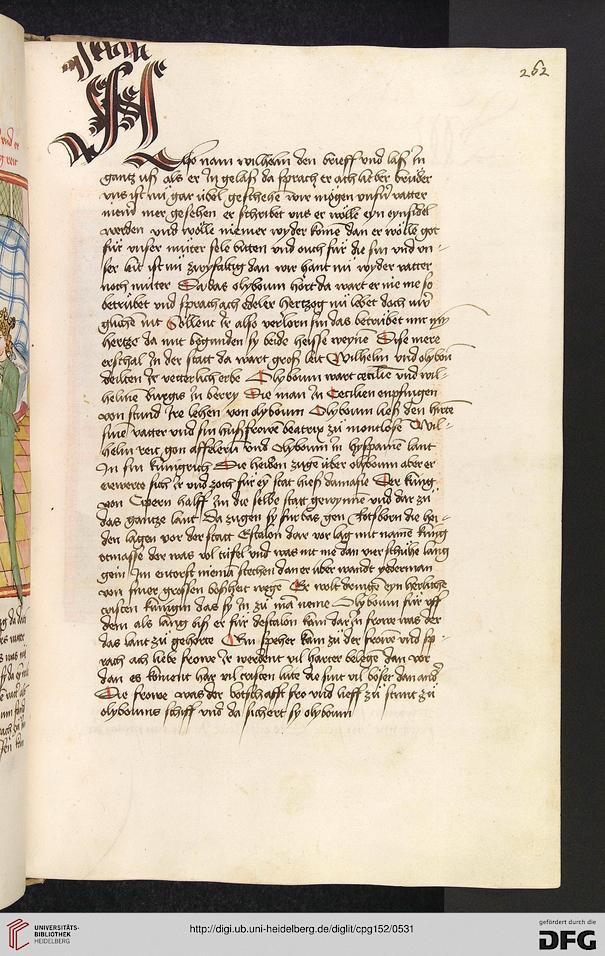 262
Also nam wilhelm den brieff vnd laß in
gantz vß als er jn gelaß da sprach er ach lieber brúder
vns ist nü gar úbel geschehen wir mögen vnsern vatter
nem mer gesehen er schribet vns er wölle eyn eynsidel
werden vnd wölle niemer wyder kome dan er wölle got
fúr vnser mútter sele bitten vnd ouch fúr die sin vnd vn-
ser leit ist nü zwyfaltig dan wir hant nü wyder vatter
noch mútter Da das olyboum hort da wart er nie me so
betrúbet vnd sprach ach edeler hertzog nü lebet doch
nit Söllent ir also verlorn sin das betrúbet mir myn
hertze da mit begunden sy beide heisse weyne Dise mere
erschal jn der statt da wart groß leit Wilhelm vnd olyboum
deilten ir vetterlich erbe Olyboum wart cecilie vnd wil-
helme burges jn berry Die man jn Cecilien enpfingen
von stund ire lehen von olyboum Olyboum ließ den hirte
sine vatter vnd sin hußfrowe beatrix zú montlose Wil-
helm reit gon vnd Olyboum jn hyspanien lant
jn sin kúnigrich Die heiden zúgen úber olyboum aber er
erwerte sich ir vnd zoch fúr ey statt hieß damasie Der kúng
von Cipern halff jm die selbe statt gewynne vnd dar zú
das gantze lant Da zugen sy fúrbas gen Rotsborn die hei-
den lagen vor der statt Estalon dar vor lag mit name kúng
der was vol túfel vnd was nit me dan vier schúhe lang
gein jm entorst niema stechen dan er úber wandt yederman
von siner grossen boßheit wege Er wolt deingen eyn herliche
cristen kúnigin das sy jn zú ma neme Olyboum fúr vff
dem als lang biß er fúr destalon kam dar jn frowe was der
das lant zú gehorte Ein speher kam zú der frowe vnd sp-
rach ach liebe frowe ir werdent vil harter belege dan vor
dan es koment har vil cristen lúte die sint vil böser dan
Die frowe was der bottschafft fro vnd lieff zú stunt zú
olyboums schiff vnd da sichert sy olyboum
UNIVERSITÄTS-
BIBLIOTHEK
HEIDELBERG
http://digi.ub.uni-heidelberg.de/diglit/cpg152/0531
gefördert durch die
DFG